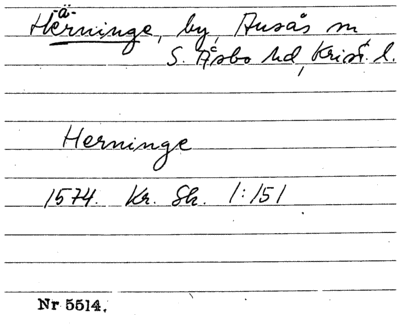 -ä-
Herninge, by, Ausås sn
S. Åsbo hd, Krist. l.
Herninge
1574. Kr. Sk. 1:151
Nr 5514.